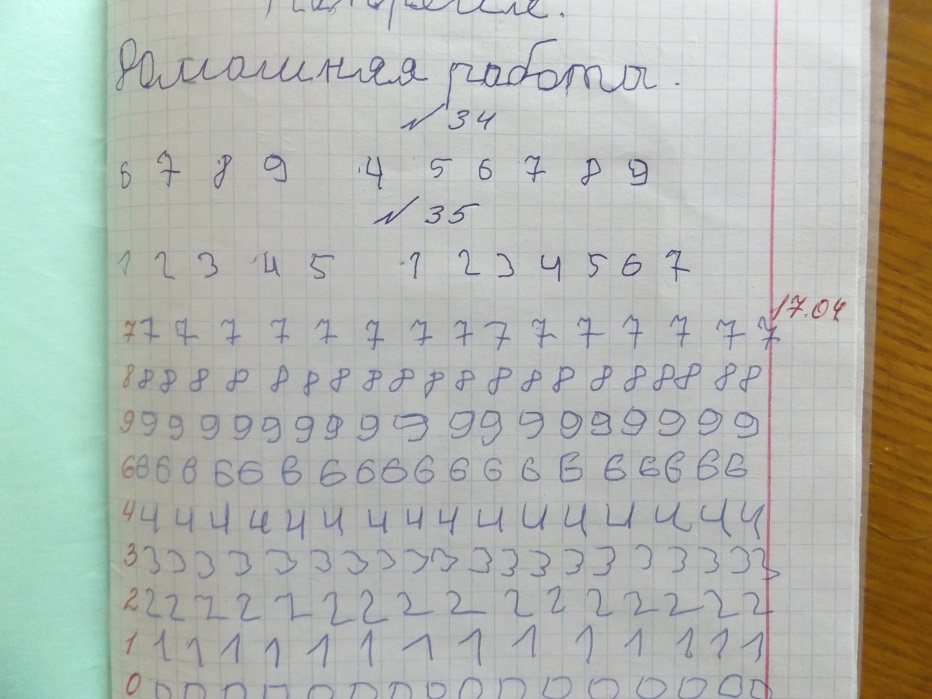 Домашняя работа.
№ 34
6 7 8 9 4 5 6 7 8 9
№ 35
1 2 3 4 5 1 2 3 4 5 6 7
17.04
7 7 7 7 7 7 7 7 7 7 7 7 7 7 7 7
8 8 8 8 8 8 8 8 8 8 8 8 8 8 8 8 8 8 8 8
9 9 9 9 9 9 9 9 9 9 9 9 9 9 9 9 9 9 9
6 6 6 6 6 6 6 6 6 6 6 6 6 6 6 6 6 6 6 6
4 4 4 4 4 4 4 4 4 4 4 4 4 4 4 4 4
3 3 3 3 3 3 3 3 3 3 3 3 3 3 3 3 3 3 3
2 2 2 2 2 2 2 2 2 2 2 2 2 2 2 2
1 1 1 1 1 1 1 1 1 1 1 1 1 1 1
0 0 0 0 0 0 0 0 0 0 0 0 0 0 0 0 0